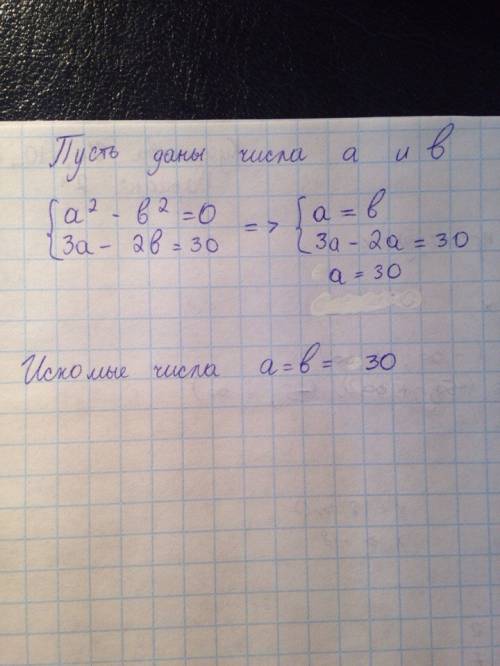 Пусть даны числа а и в
{a² - в² = 0 => {a = в
{3a - 2в = 30 {3a - 2a = 30
a = 30
Искомые числа a = в = 30